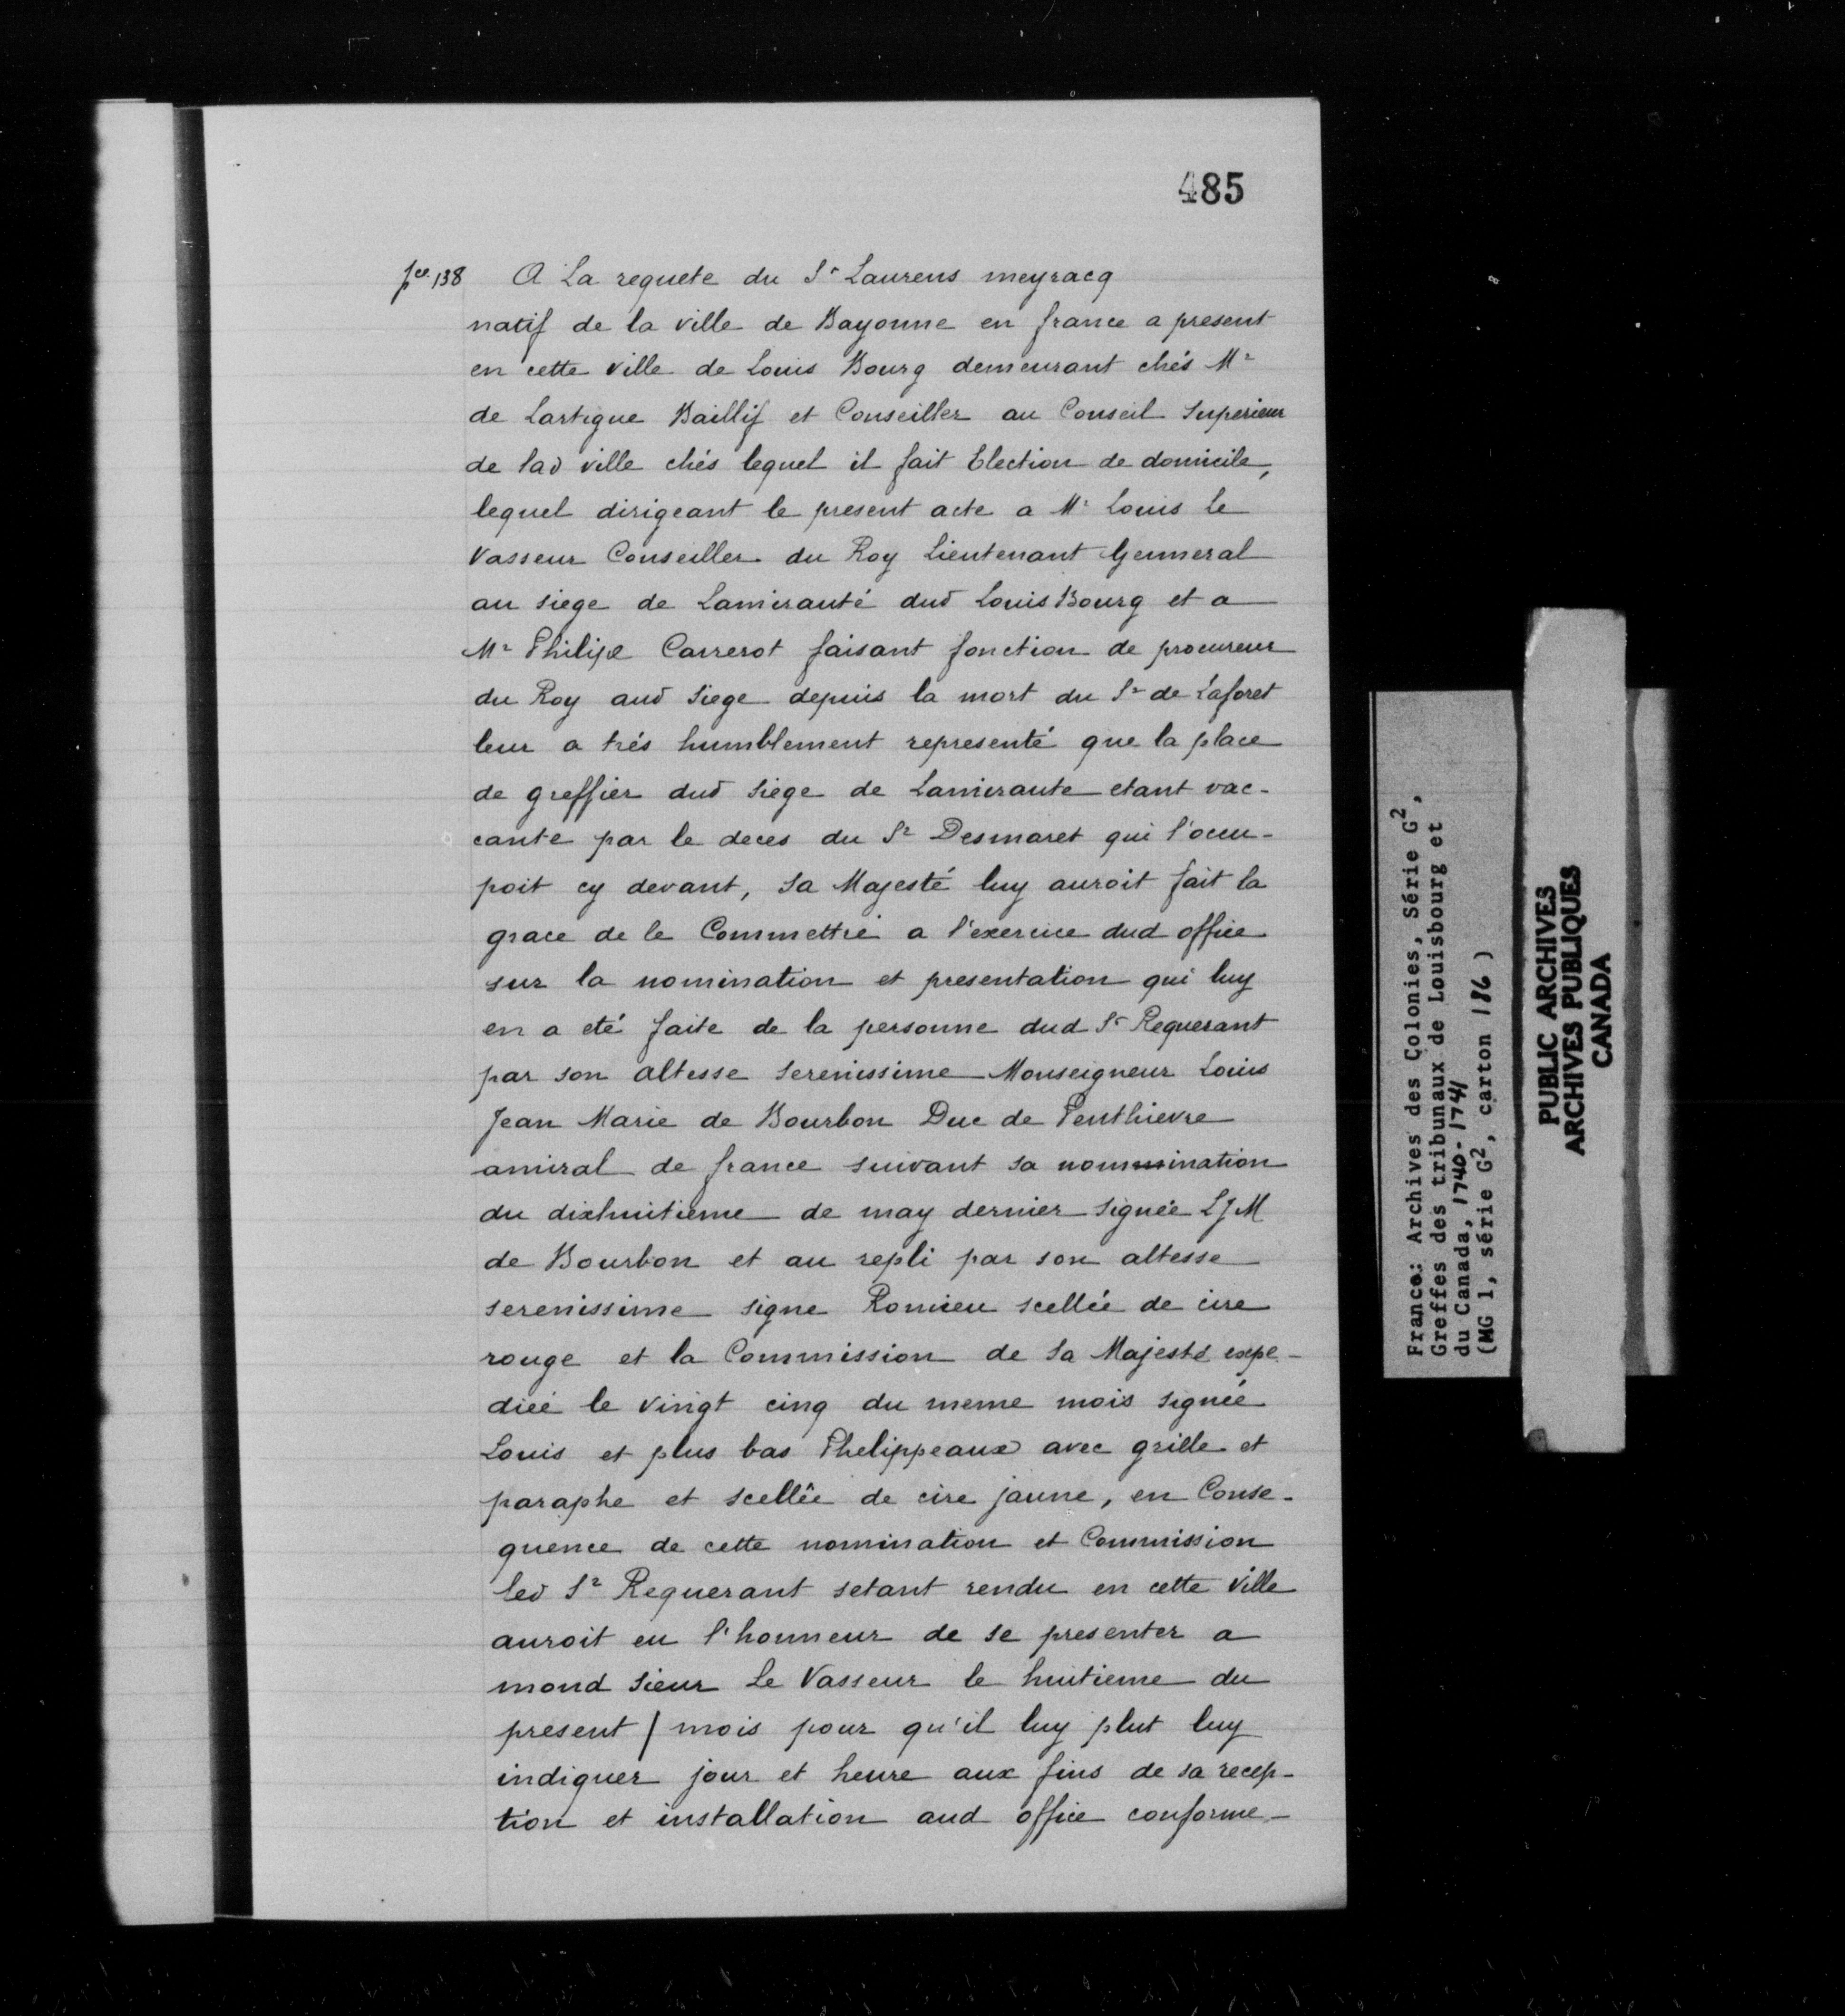 485
fo. 138 A La requete du Sr Laurens meyracq
natif de la ville de Bayonne en france a present
en cette ville de Louis Bourg demeurant chés Mr
de Lartigue Baillif et Conseiller au Conseil Superieur
de lad ville chés lequel il fait Election de domicile,
lequel dirigeant le present acte a Mr Louis Le
Vasseur Conseiller du Roy Lieutenant Genneral
au siege de Lamirauté dud Louis Bourg et a
Mr Philipe Carrerot faisant fonction de procureur
du Roy aud Siege depuis la mort du Sr de Laforet
leur a trés humblement representé que la place
de greffier dud Siege de Lamiraute etant vac-
cante par le deces du Sr Desmaret qui l'ocu-
poit cy devant, Sa Majesté luy auroit fait la
grace de le Commettre a l'exercice dud office
sur la nomination et presentation qui luy
en a eté faite de la personne dud Sr Requerant
par son altesse Serenissime Monseigneur Louis
Jean Marie de Bourbon Duc de Penthievre
amiral de france suivant sa nommination
du dixhuitieme de may dernier signée LJM
de Bourbon et au repli par son altesse
serenissime signe Romieu scellée de cire
rouge et la Commission de Sa Majesté expe-
diée le vingt cinq du meme mois signée
Louis et plus bas Phelippeaux avec grille et
paraphe et scellée de cire jaune, en Conse-
quence de cette nomination et Commission
led Sr Requerant setant rendu en cette Ville
auroit eu l'honneur de se presenter a
mond Sieur Le Vasseur le huitieme du
present / mois pour qu'il luy plut luy
indiquer jour et heure aux fins de sa recep-
tion et installation aud office conforme-
France: Archives des Colonies, Série G2,
Greffes des tribunaux de Louisbourg et
du Canada, 1740-1741
(MG 1, série G2, carton 186 )
PUBLIC ARCHIVES
ARCHIVES PUBLIQUES
CANADA